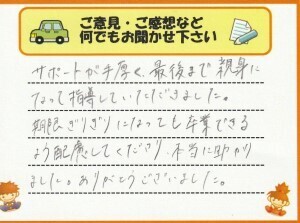 ご意見・ご感想など
何でもお聞かせ下さい
サポートが手厚く、最後まで親身に
なって指導していただきました。
期限ぎりぎりになっても卒業できる
よう配慮してくださり、本当に助かり
ました。ありがとうございました。